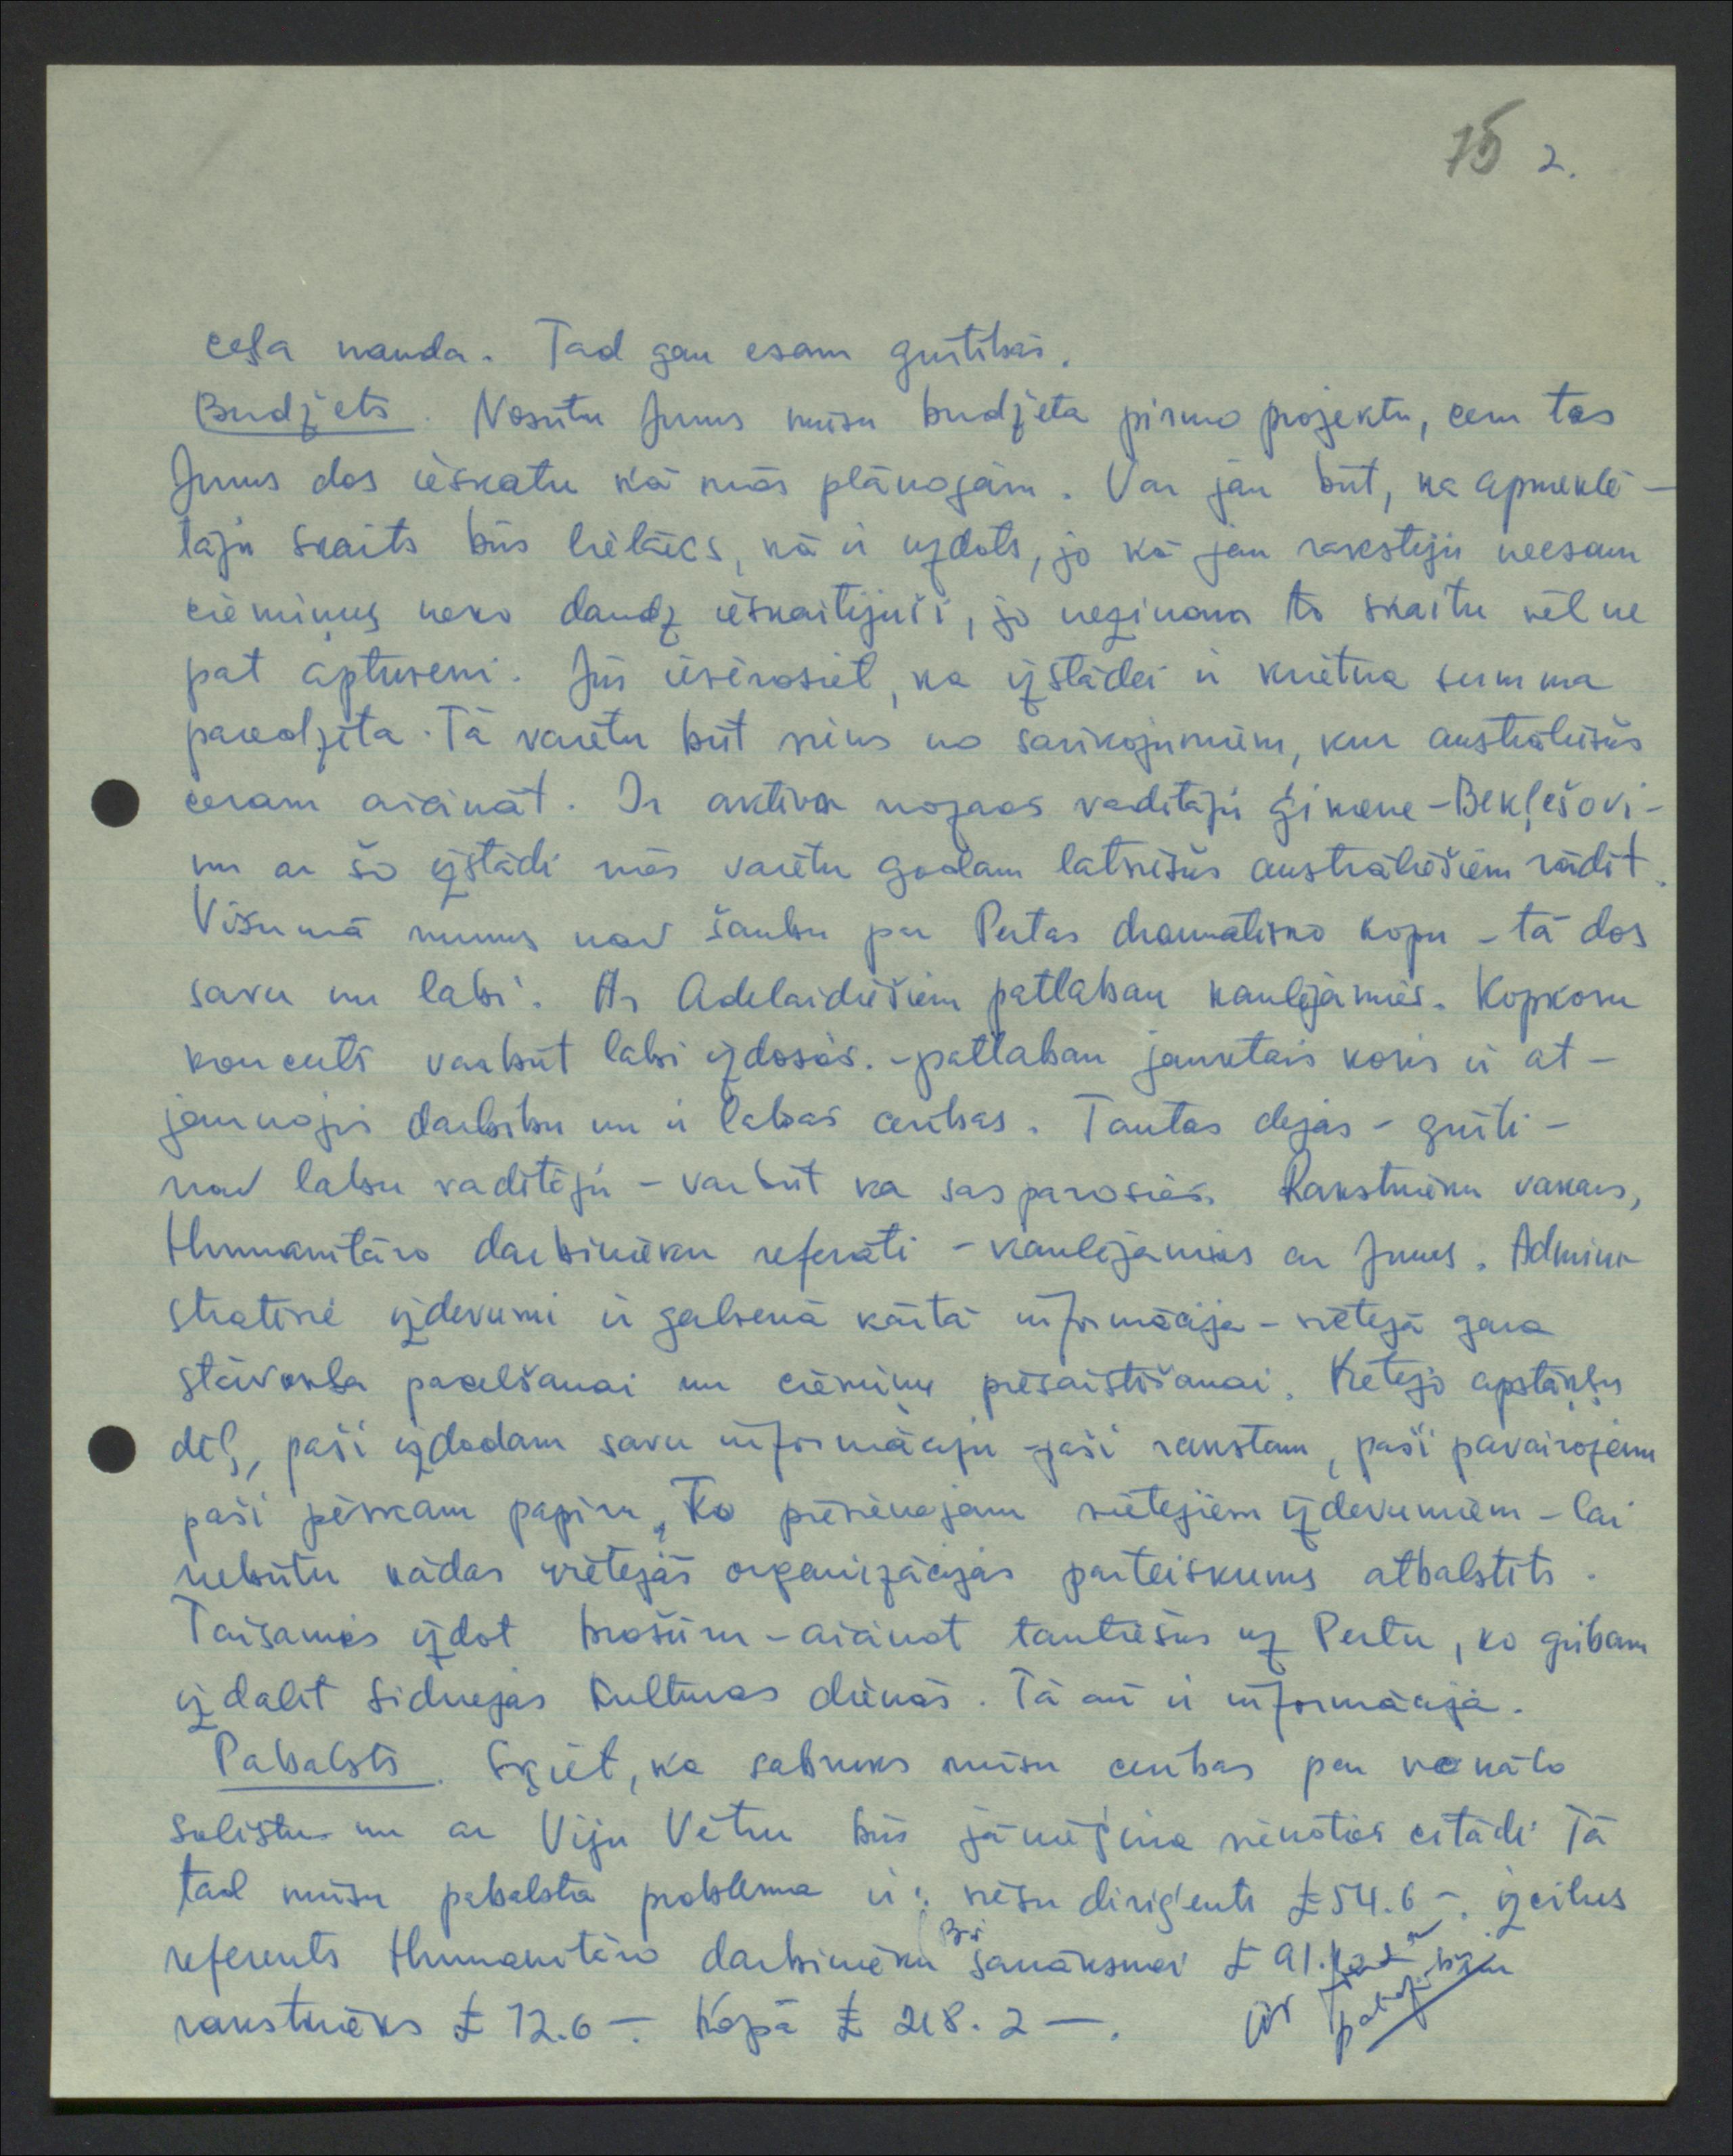 75 2.
ceļa nauda. Tad gan esam grūtībās.
Budžets. Nosūtu Jums mūsu budžeta pirmo projektu, cem tas
Jums dos ieskatu kā mēs plānojam. Var jau būt, ka apmeklē-
tāju skaits būs lielāks, kā ir uzdots, jo kā jau rakstīju neesam
ciemiņus neko daudz ieskaitījuši, jo nezinam to skaitu vēl ne
pat aptuveni. Jūs ievērosiet, ka izstādei ir krietna summa
paredzēta. Tā varētu būt viens no sarīkojumiem, kur austrāliešus
ceram aicināt. Ir aktīva nozares vadītāja Ģimene-Bekļešovi-
un ar šo izstādi mēs varētu godam latviešus austrāliešiem rādīt.
Visumā mums nav šaubu par Pertas dramatisko kopu - tā dos
savu un labi. Ar Adelaidiešiem patlaban kaulējamies. Kopkoru
koncerts varbūt labi izdosies. - patlaban jauktais koris ir at-
jaunojis darbību un ir labas cerības. Tautas dejas - grūti -
nav labu vadītāju - varbūt ka sasparosies. Rakstnieku vakars,
Humanitāro darbinieku referāti - kaulējamies ar Jums. Admini-
stratīvie izdevumi ir galvenā kārtā informācija - vietējā gara
stāvokļa pacelšanai un ciemiņu piesaistīšanai. Vietējo apstākļu
dēļ, paši izdodam savu informāciju - paši rakstam, paši pavairojam
paši pērkam papīru. To pievienojam vietējiem izdevumiem - lai
nebūtu kādas vietējās organizācijas parteiskums atbalstīts.
Taisamies izdot brošūru - aicinot tautiešus uz Pertu, ko gribam
izdalīt Sidnejas Kultūras dienās. Tā arī ir informācija.
Pabalsts. Šķiet, ka sabruks mūsu cerības par vokālo
solistu un ar Viju Vētru būs jāmēģina vienoties citādi Tā
tad mūsu pabalsta problema ir: viesu diriģents £ 54.6 -. izcilus
referents Humanitāro darbinieku sanāksmei £ 91.
rakstnieks £ 72.6 -. Kopā £ 218.2 -.